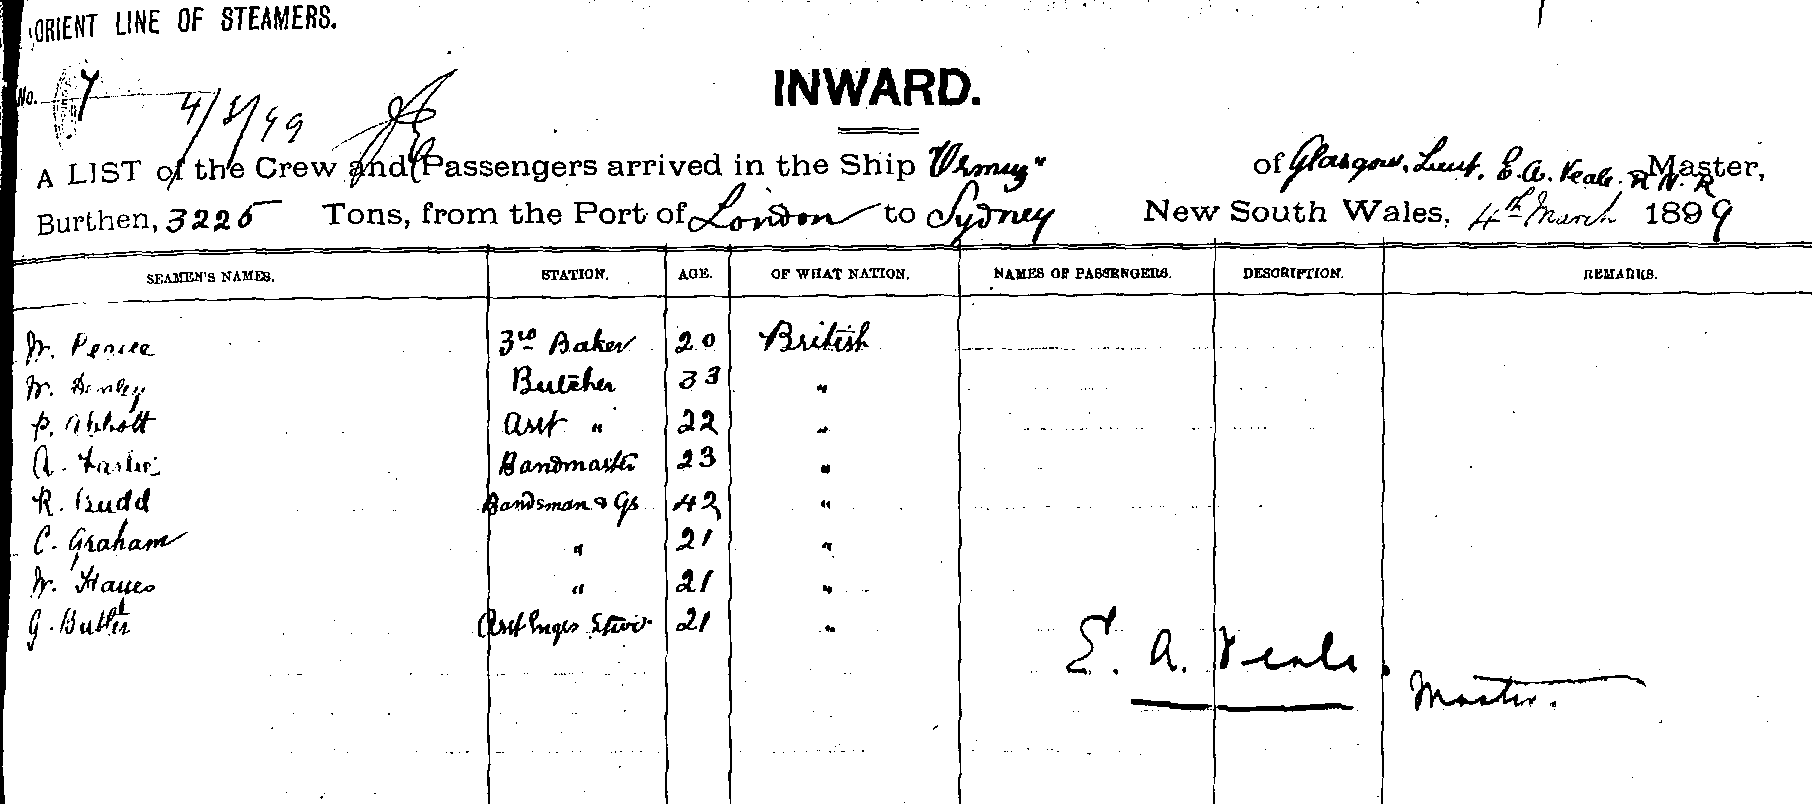 ORIENT LINE OF STEAMERS.
No. 7
4/3/99
INWARD.
A LIST of the Crew and Passengers arrived in the Ship "Ormuz" of Glasgow, Lieut. E. A. Veale. R.N.R Master,
Burthen, 3225 Tons, from the Port of London to Sydney New South Wales, 4th March 1899
SEAMEN'S NAMES. STATION. AGE. OF WHAT NATION. NAMES OF PASSENGERS. DESCRIPTION. REMARKS.
W. Pearce 3rd Baker 20 British
W. Henley Butcher 33 "
P. Abbott Asst " 22 "
A. Bandmaster 23 "
R. Budd Bandsman & Gs 42 "
C. Graham " 21 "
W. Hayes " 21 "
G. Butler Asst Engrs Stwd 21 "
E. A. Veale.
Master.